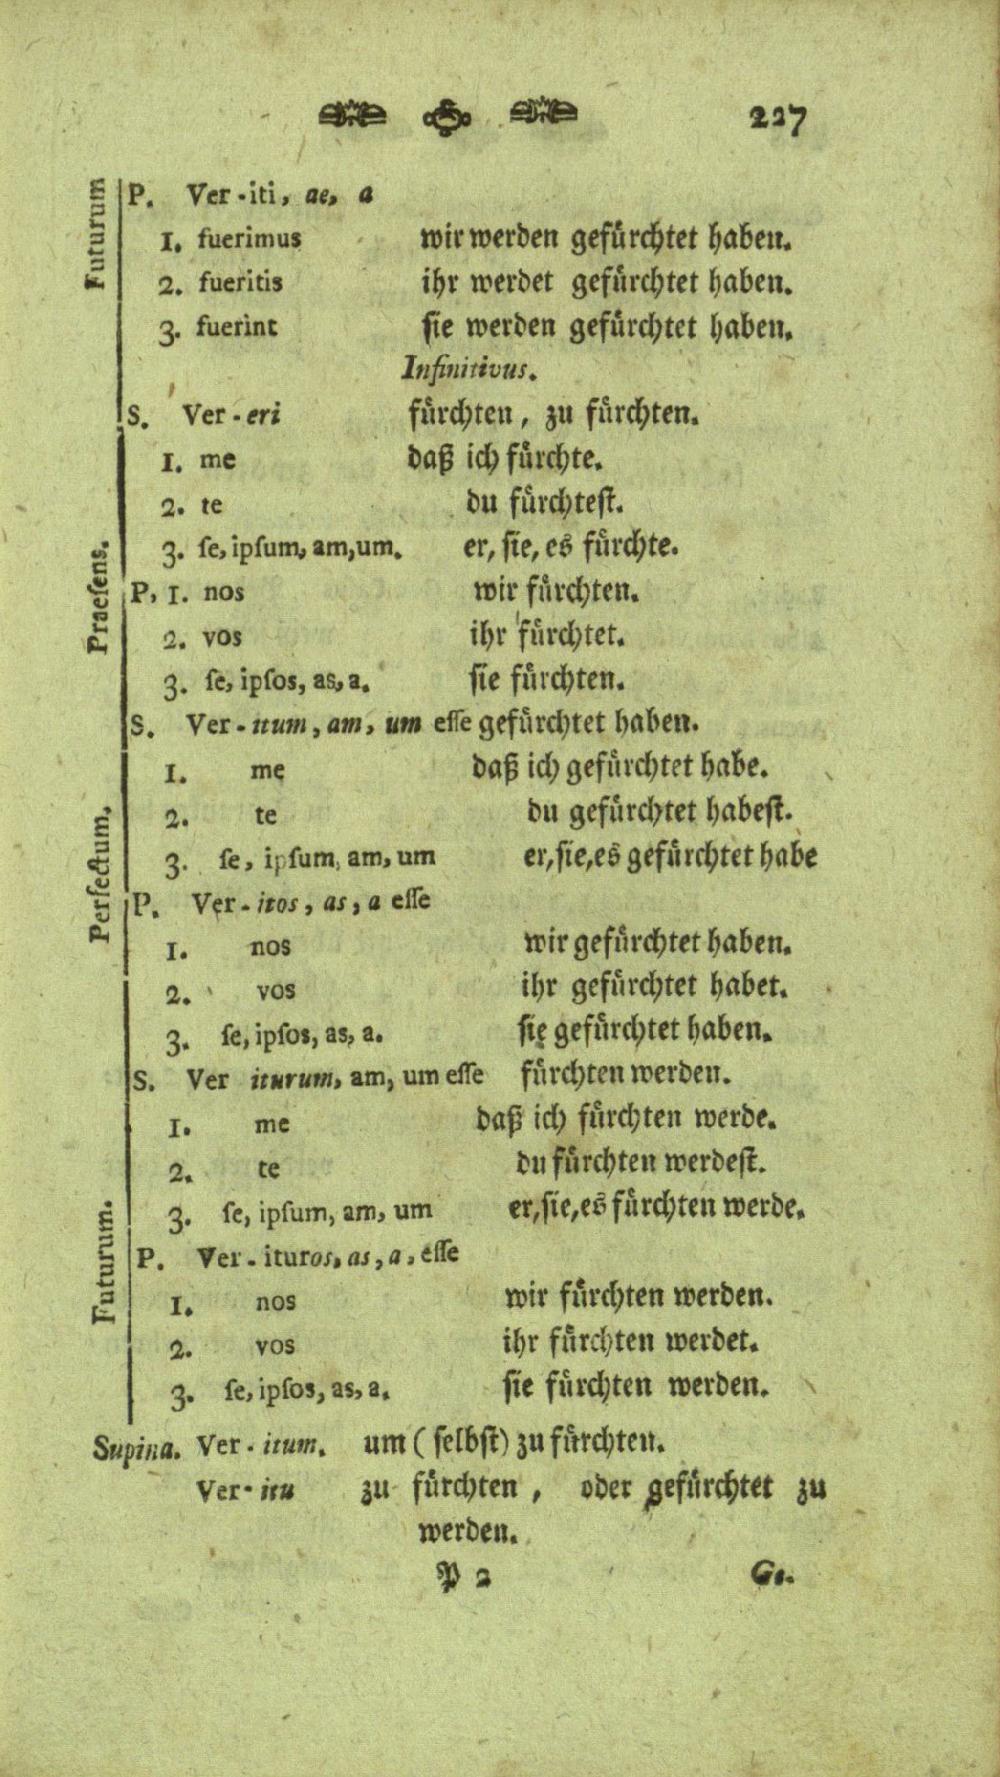 227
Futurum
P. Ver-iti, ae, a
1. fuerimus wir werden gefürchtet haben.
2. fueritis ihr werdet gefürchtet haben.
3. fuerint sie werden gefürchtet haben.
Infinitivus.
Praeſens.
S. Ver-eri fürchten, zu fürchten.
1. me daß ich fürchte.
2. te du fürchteſt.
3. ſe, ipſum, am, um. er, ſie, es fürchte.
P, 1. nos wir fürchten.
2. vos ihr fürchtet.
3. ſe, ipſos, as, a. ſie fürchten.
Perfectum.
S. Ver-itum, am, um eſſe gefürchtet haben.
1. me daß ich gefürchtet habe.
2. te du gefürchtet habeſt.
3. ſe, ipſum, am, um er, ſie, es gefürchtet habe
P. Ver-itos, as, a eſſe
1. nos wir gefürchtet haben.
2. vos ihr gefürchtet habet.
3. ſe, ipſos, as, a. ſie gefürchtet haben.
Futurum.
S. Ver iturum, am, um eſſe fürchten werden.
1. me daß ich fürchten werde.
2. te du fürchten werdeſt.
3. ſe, ipſum, am, um er, ſie, es fürchten werde.
P. Ver-ituros, as, a, eſſe
1. nos wir fürchten werden.
2. vos ihr fürchten werdet.
3. ſe, ipſos, as, a. ſie fürchten werden.
Supina. Ver-itum. um (ſelbſt) zu fürchten.
Ver-itu zu fürchten, oder gefürchtet zu
werden.
P 2 Ge-